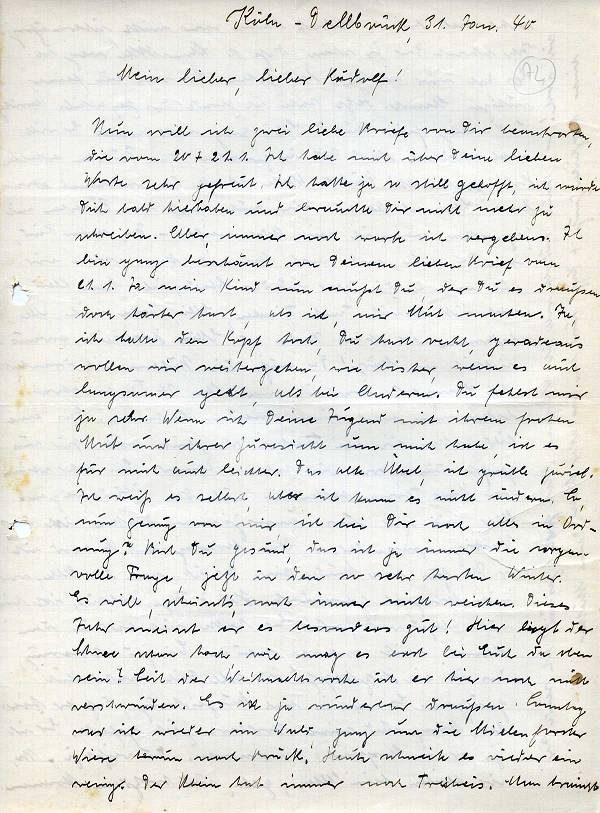 Köln-Dellbrück, 31. Jan. 40
AL
Mein lieber, lieber Rudolf!
Nun will ich zwei liebe Briefe von Dir beantworten,
die vom 20 + 21.1. Ich habe mich über Deine lieben
Worte sehr gefreut. Ich hatte ja so still gehofft, ich würde
Dich bald hierhaben und brauchte Dir nicht mehr zu
schreiben. Aber, immer noch warte ich vergebens. Ich
bin ganz beschämt von Deinem lieben Brief vom
21.1. Ja mein Kind nun mußt Du, der Du es draußen
doch härter hast, als ich, mir Mut machen. Ja,
ich halte den Kopf hoch, Du hast recht, geradeaus
wollen wir weitergehen, wie bisher, wenn es auch
langsamer geht, als bei Anderen. Du fehlst mir
ja sehr. Wenn ich Deine Jugend mit ihrem frohen
Mut und ihrer Zuversicht um mich habe, ist es
für mich auch leichter. Das alte Übel, ich grüble zuviel.
Ich weiß es selbst, aber ich kann es nicht ändern.
nun genug von mir ist bei Dir noch alles in Ord-
nung? Bist Du gesund, das ist ja immer die sorgen
volle Frage, jetzt in dem so sehr harten Winter.
Es will, scheints, noch immer nicht weichen. Dieses
Jahr meint er es besonders gut! Hier liegt der
Schnee schon hoch wie mag es erst bei Euch da oben
sein? Seit der Weihnachtswoche ist er hier noch nicht
verschwunden. Es ist ja wunderbar draußen. Sonntag
war ich wieder im Wald, ganz um die Mielenforster
Wiese herum nach Brück. Heute schneit es wieder ein
wenig. Der Rhein hat immer noch Treibeis. Man